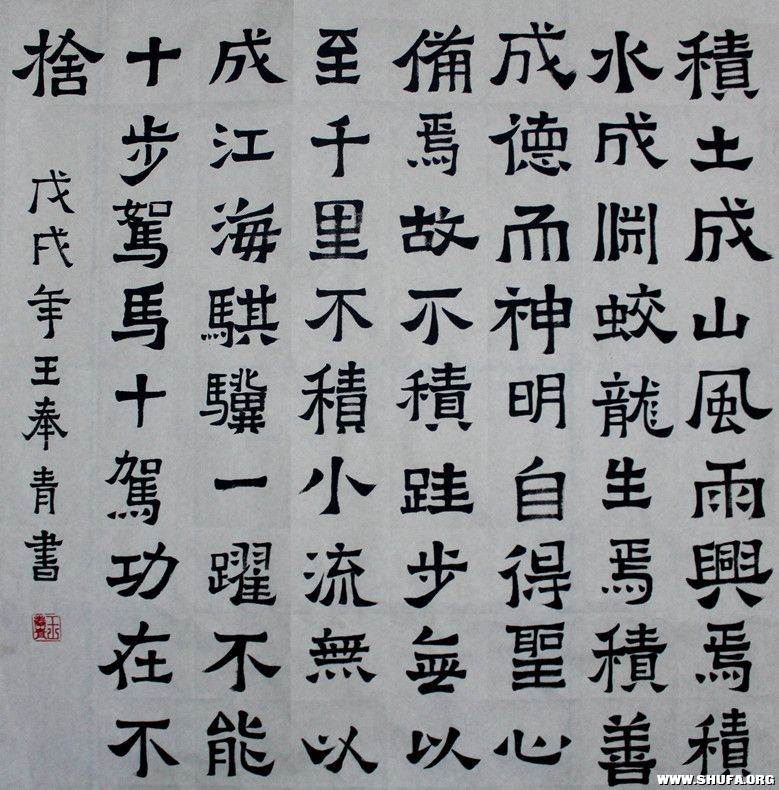 積土成山風雨興焉積
水成淵蛟龍生焉積善
成德而神明自得聖心
備焉故不積跬步無以
至千里不積小流無以
成江海騏驥一躍不能
十步駑馬十駕功在不
捨
戊戌年王奉青書
WWW.SHUFA.ORG